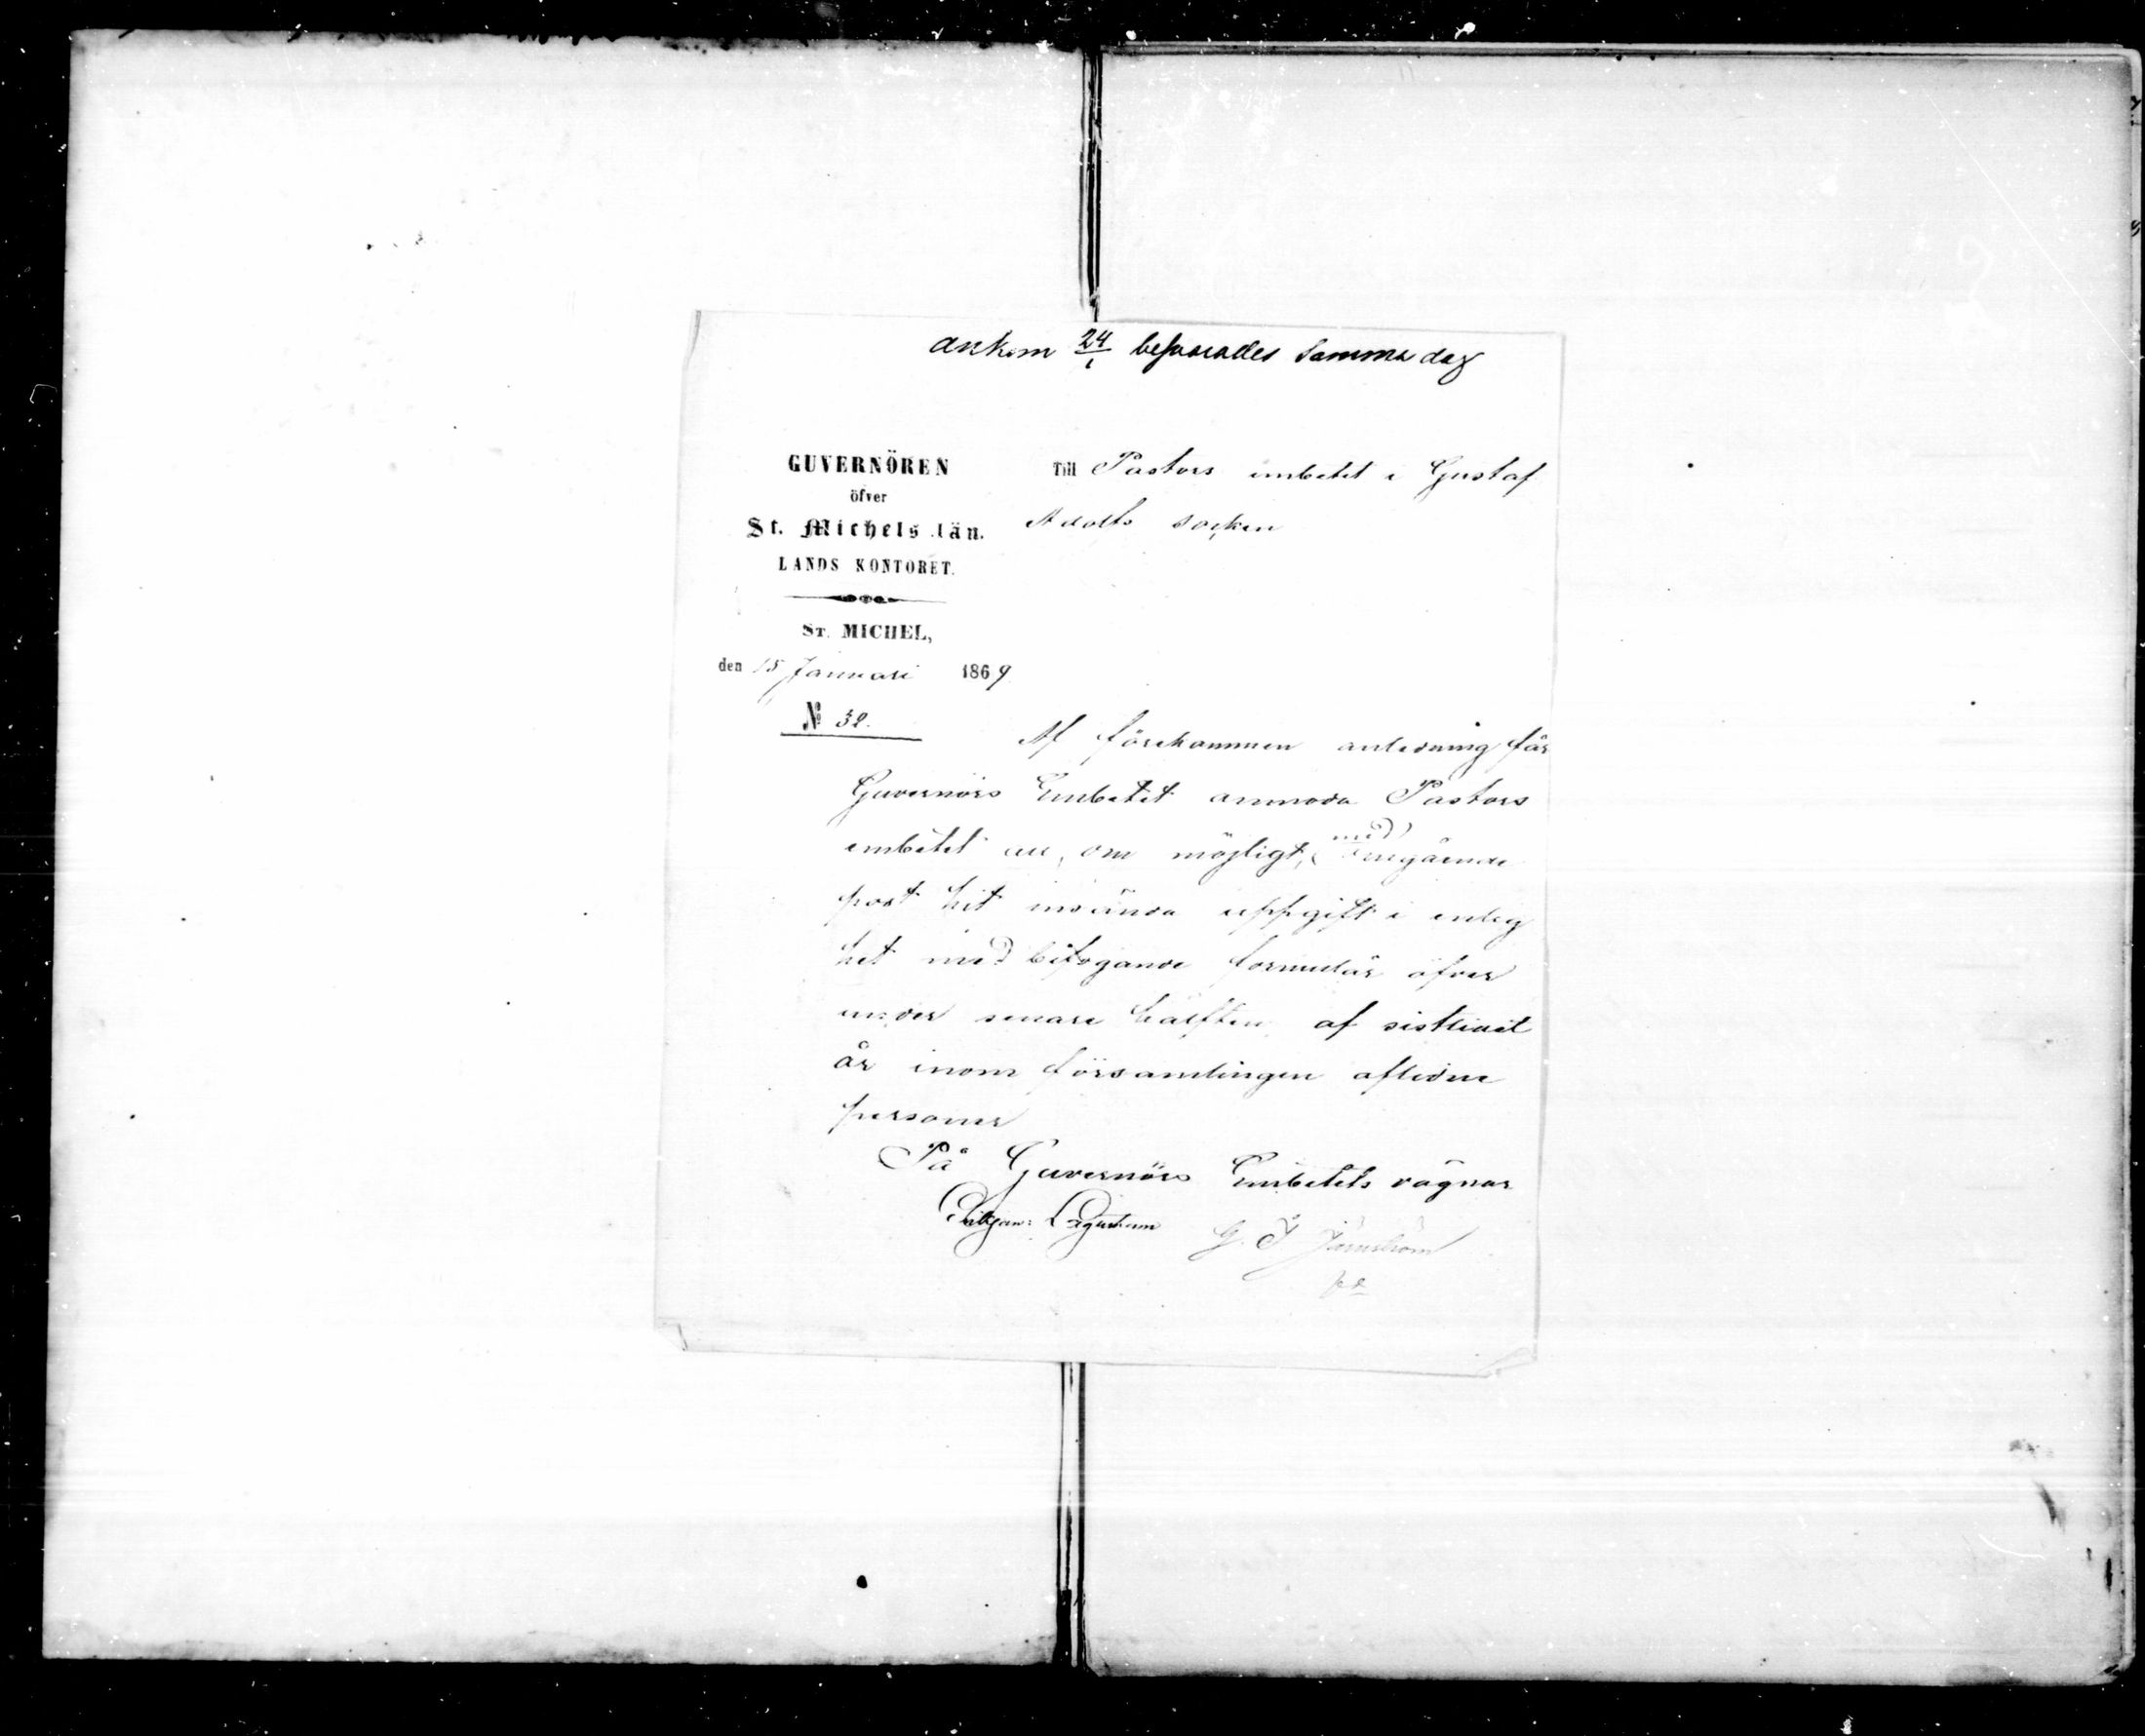 ankom 24/1 besvarades Samma dag
GUVERNÖREN
öfver
St. Michels län.
LANDS KONTORET.
ST. MICHEL,
den 15 Januari 1869
№ 32.
Till Pastors embetet i Gustaf
Adolfs socken
Af förekommen anledning får
Guvernörs Embetet anmoda Pastors
embetet att, om möjligt, med omgående
post hit insända uppgift i enlig
het med bifogande formulär öfver
under senare hälften af sistlidet
år inom församlingen aflidne
personer
På Guvernörs Embetets vägnar
G. F.